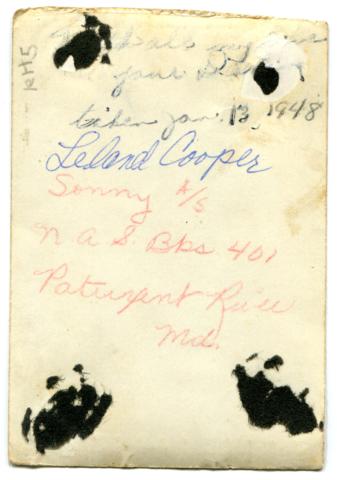 your
taken Jan. 13, 1948
Leland Cooper
Sonny A/S
N A S. Bks 401
Patuxent River
Md.